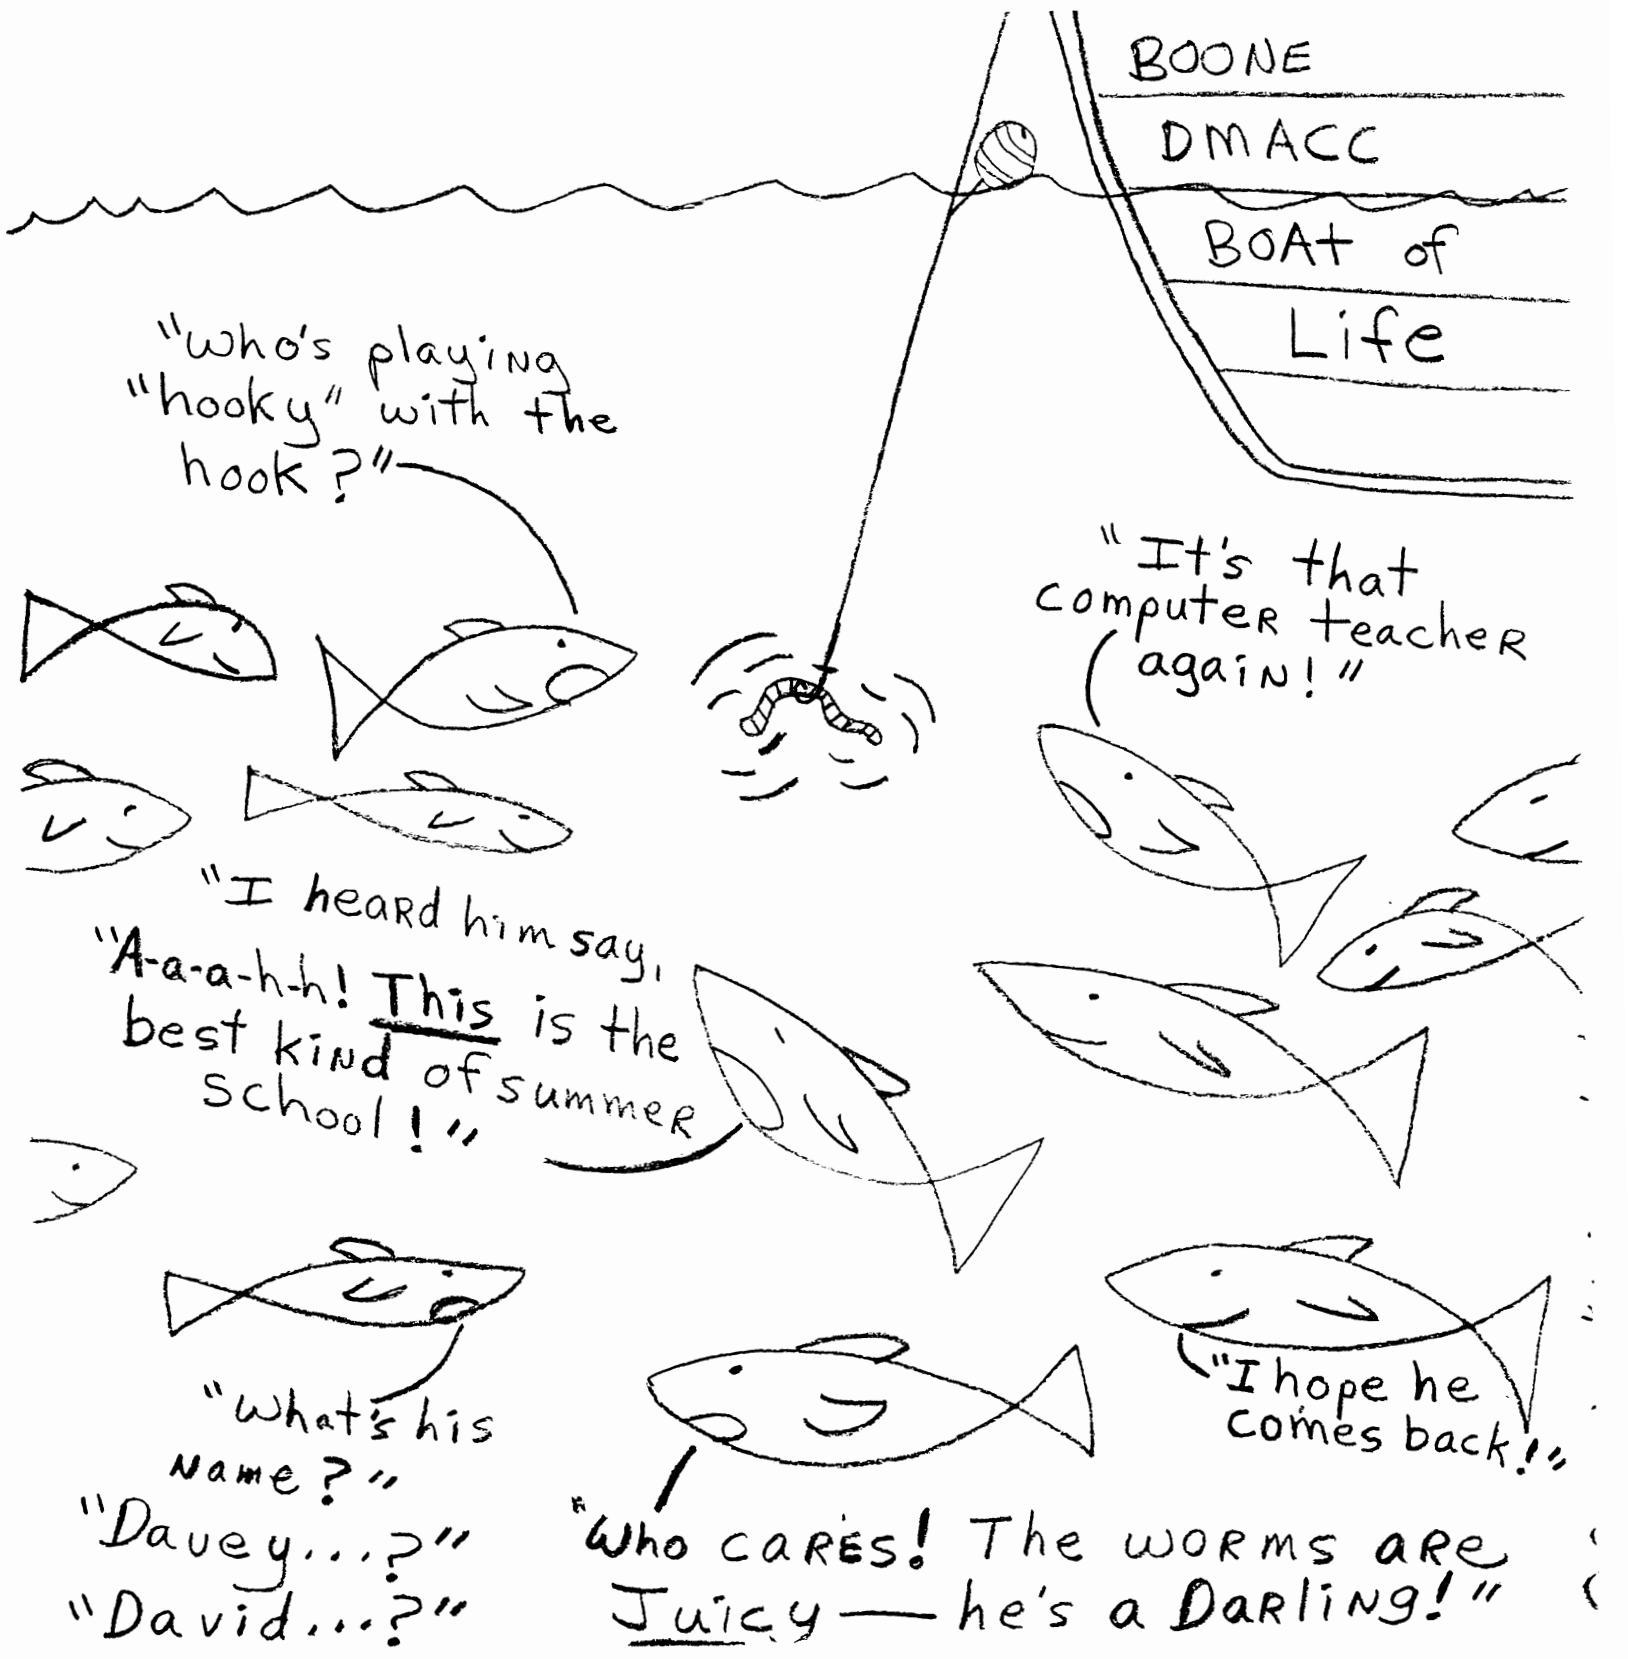 BOONE
DMACC
BOAt of
Life
"Who's playing
"hooky" with the
hook?"
"It's that
computer teacher
again!"
"I heard him say,
"A-a-a-h-h! This is the
best kind of summer
school!"
"What's his
Name?"
"Davey...?"
"David...?"
"I hope he
comes back!"
"Who cares! The worms are
Juicy — he's a Darling!"